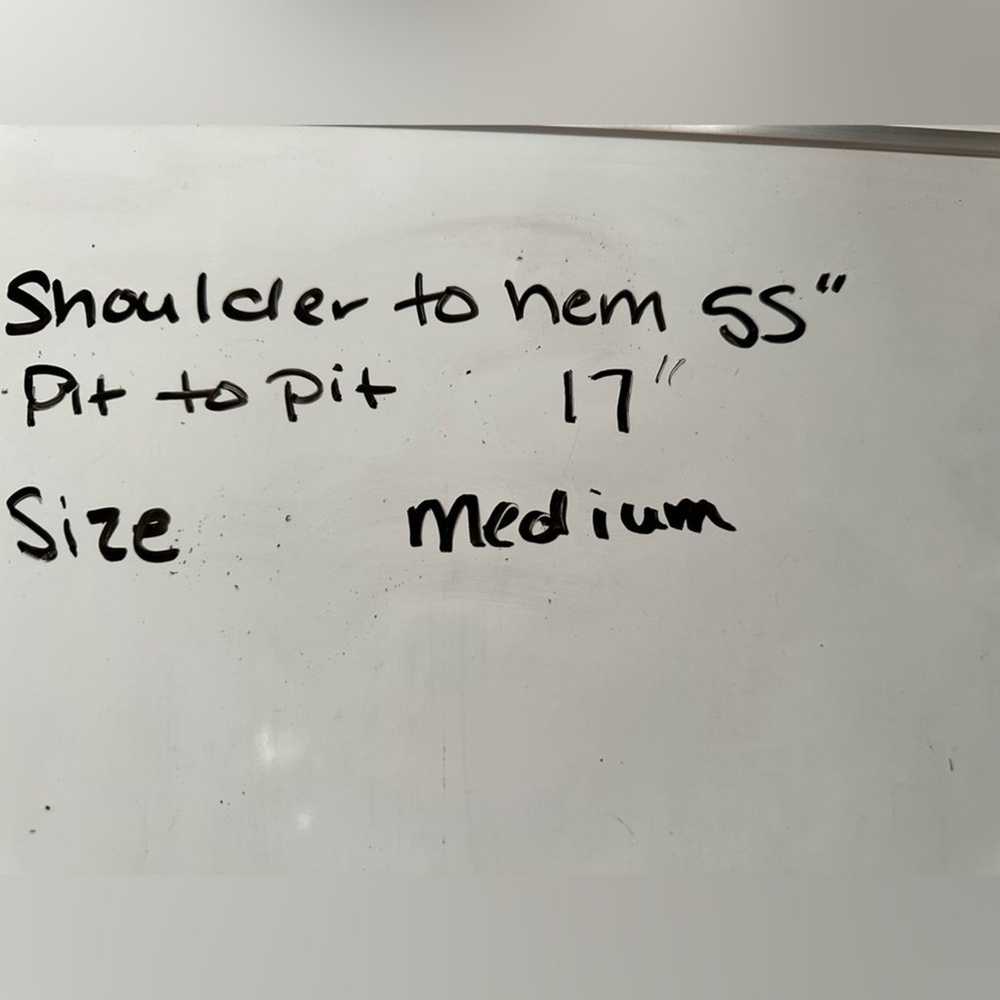 Shoulder to hem 55"
Pit to pit 17"
Size Medium